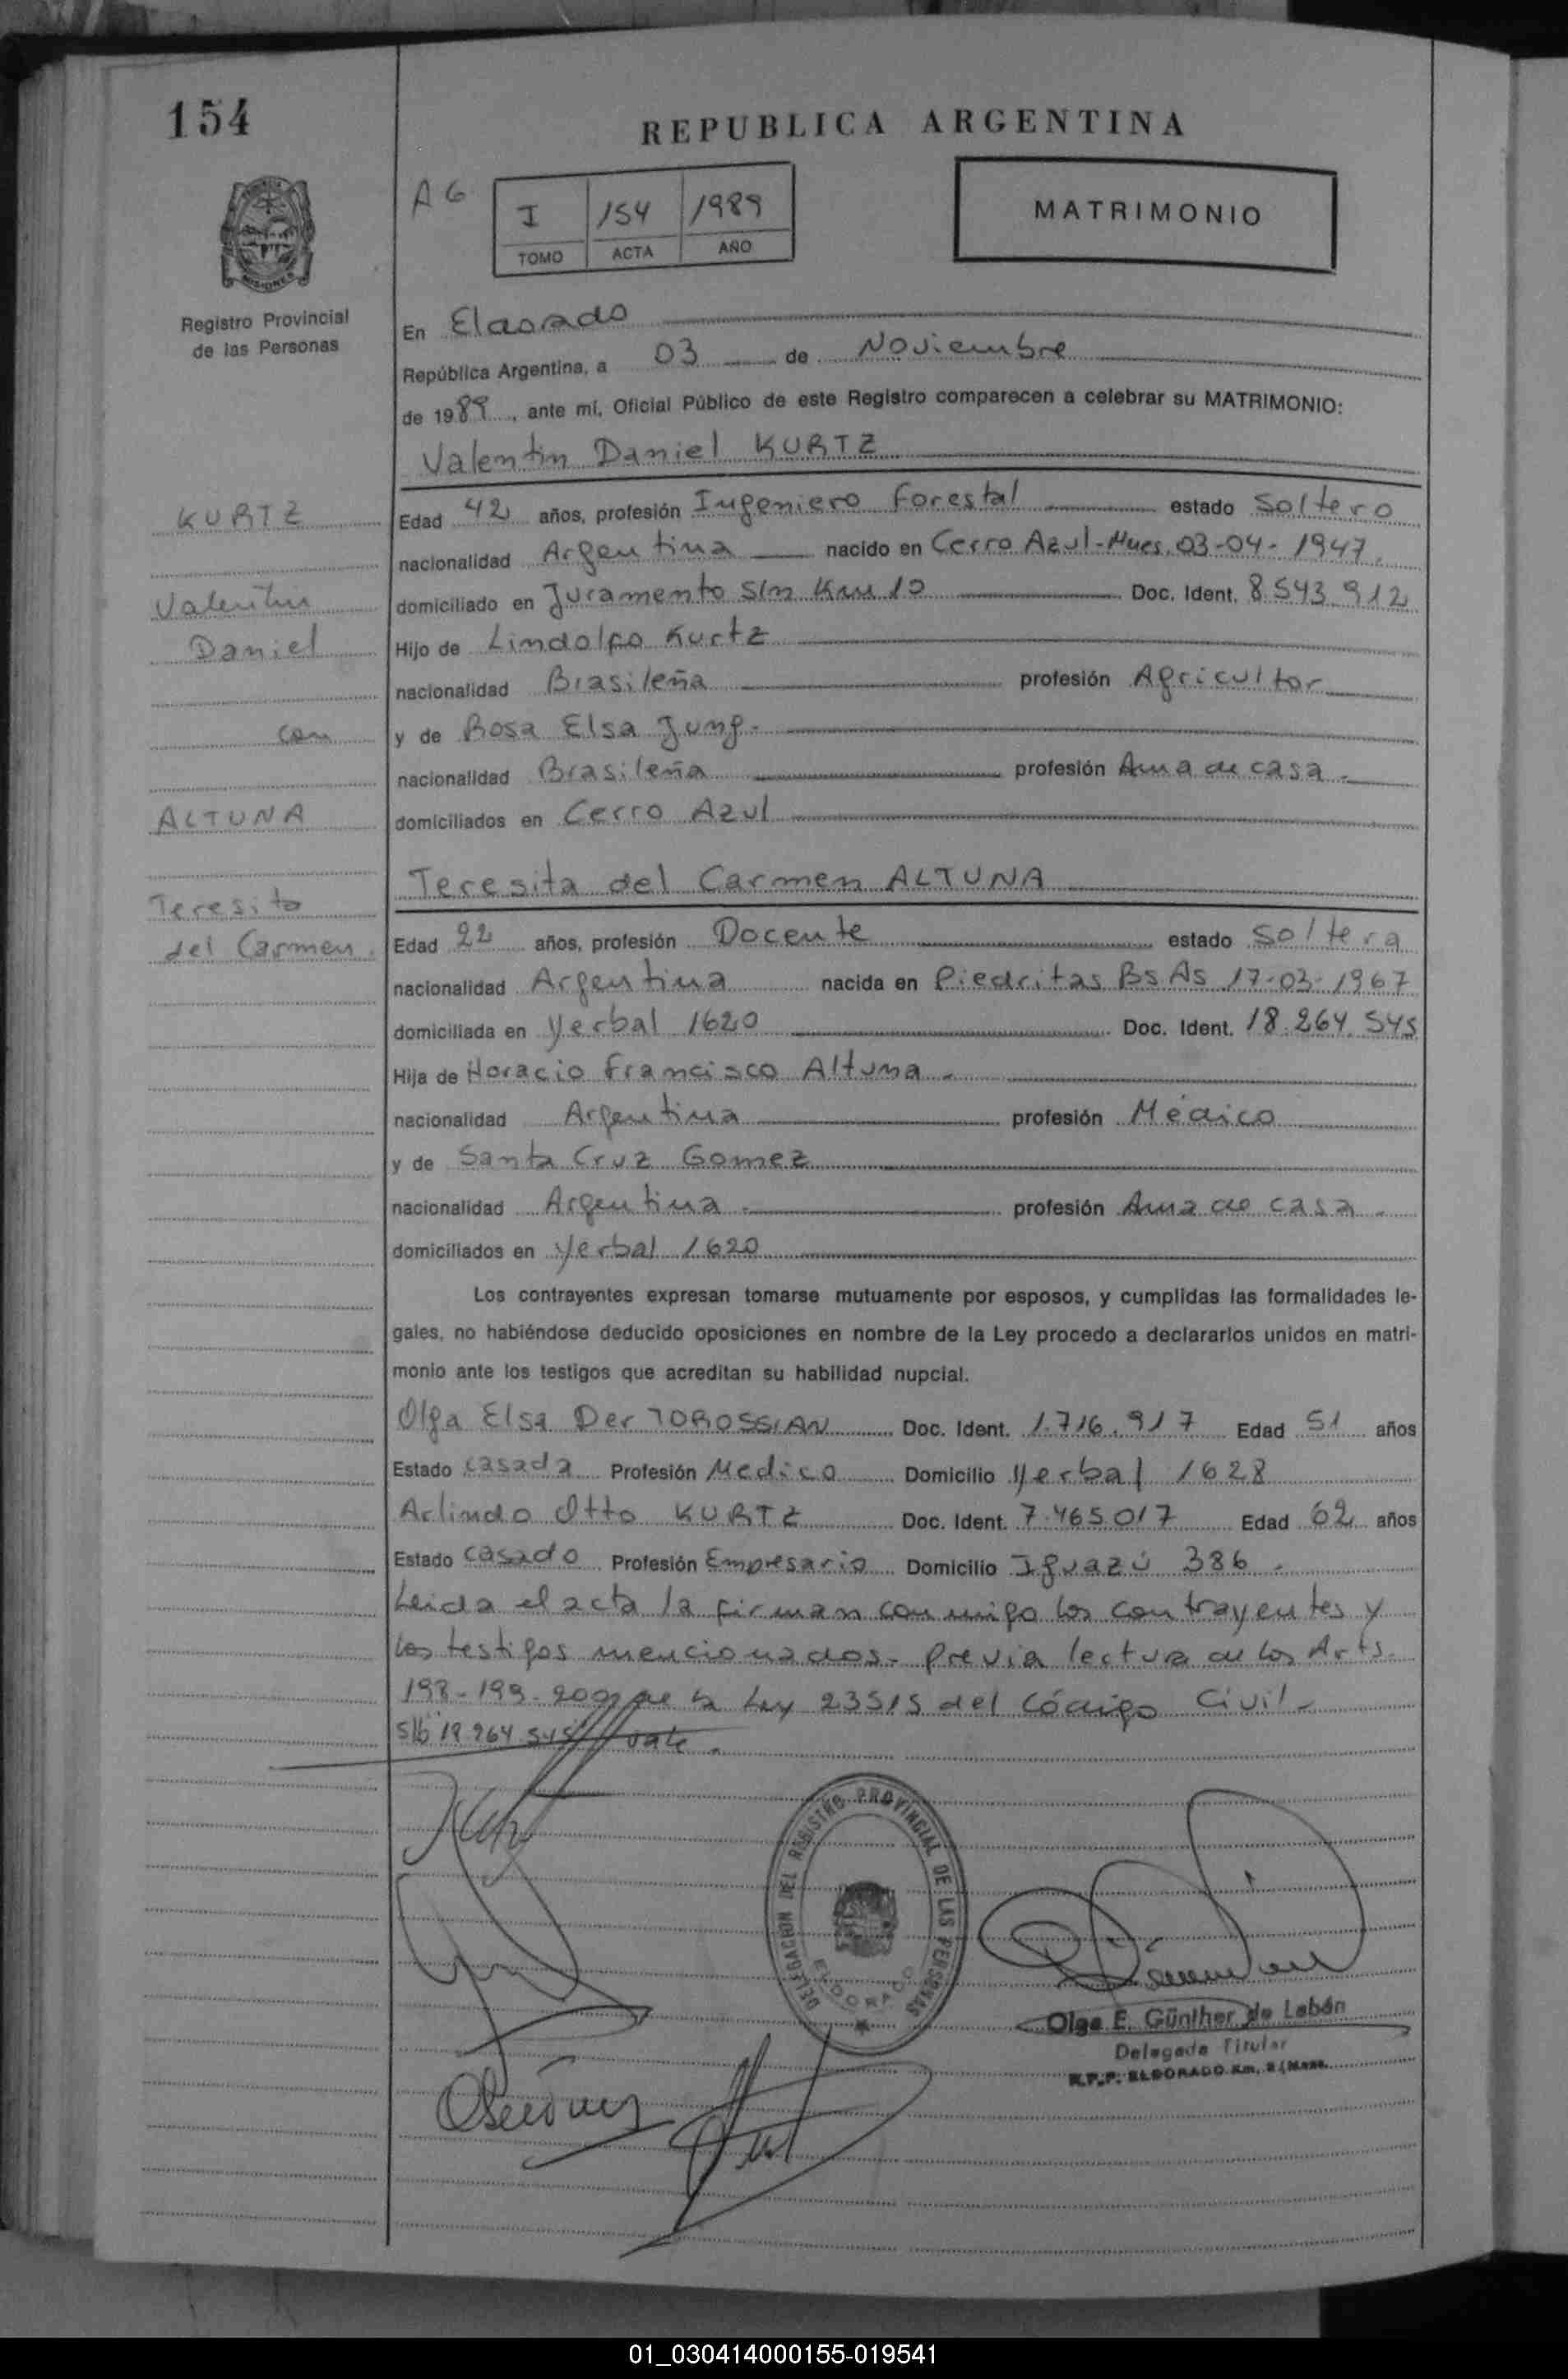 154
REPUBLICA ARGENTINA
A G
I 154 1989
TOMO ACTA AÑO
MATRIMONIO
MISIONES
Registro Provincial
de las Personas
En Eldorado
República Argentina, a 03 de Noviembre
de 1989, ante mí, Oficial Público de este Registro comparecen a celebrar su MATRIMONIO:
Valentin Daniel KURTZ
KURTZ
Valentin
Daniel
con
ALTUNA
Teresita
del Carmen.
Edad 42 años, profesión Ingeniero Forestal estado Soltero
nacionalidad Argentina nacido en Cerro Azul-Mnes. 03-04-1947.
domiciliado en Juramento s/n Km 10 Doc. Ident. 8.543.912
Hijo de Lindolfo Kurtz
nacionalidad Brasileña profesión Agricultor
y de Rosa Elsa Jung.-
nacionalidad Brasileña profesión Ama de casa.-
domiciliados en Cerro Azul
Teresita del Carmen ALTUNA
Edad 22 años, profesión Docente estado Soltera
nacionalidad Argentina nacida en Piedritas Bs As 17-03-1967
domiciliada en Yerbal 1620 Doc. Ident. 18.264.545
Hija de Horacio Francisco Altuna.-
nacionalidad Argentina profesión Médico
y de Santa Cruz Gomez
nacionalidad Argentina.- profesión Ama de casa.-
domiciliados en Yerbal 1620
Los contrayentes expresan tomarse mutuamente por esposos, y cumplidas las formalidades le-
gales, no habiéndose deducido oposiciones en nombre de la Ley procedo a declararlos unidos en matri-
monio ante los testigos que acreditan su habilidad nupcial.
Olga Elsa Der TOROSSIAN Doc. Ident. 1.716.917 Edad 51 años
Estado casada Profesión Medico Domicilio Yerbal 1628
Arlindo Otto KURTZ Doc. Ident. 7.465.017 Edad 62 años
Estado casado Profesión Empresario Domicilio Iguazú 386.-
Leida el acta la firman conmigo los contrayentes y
los testigos mencionados.- Previa lectura de los Arts.
198-199-200 de la Ley 23515 del Código Civil.-
S/b 18.264.545 vale.-
DELEGACION DEL REGISTRO PROVINCIAL DE LAS PERSONAS
ELDORADO
Olga E. Günther de Labán
Delegada Titular
R.P.P. ELDORADO Km.
01_030414000155-019541